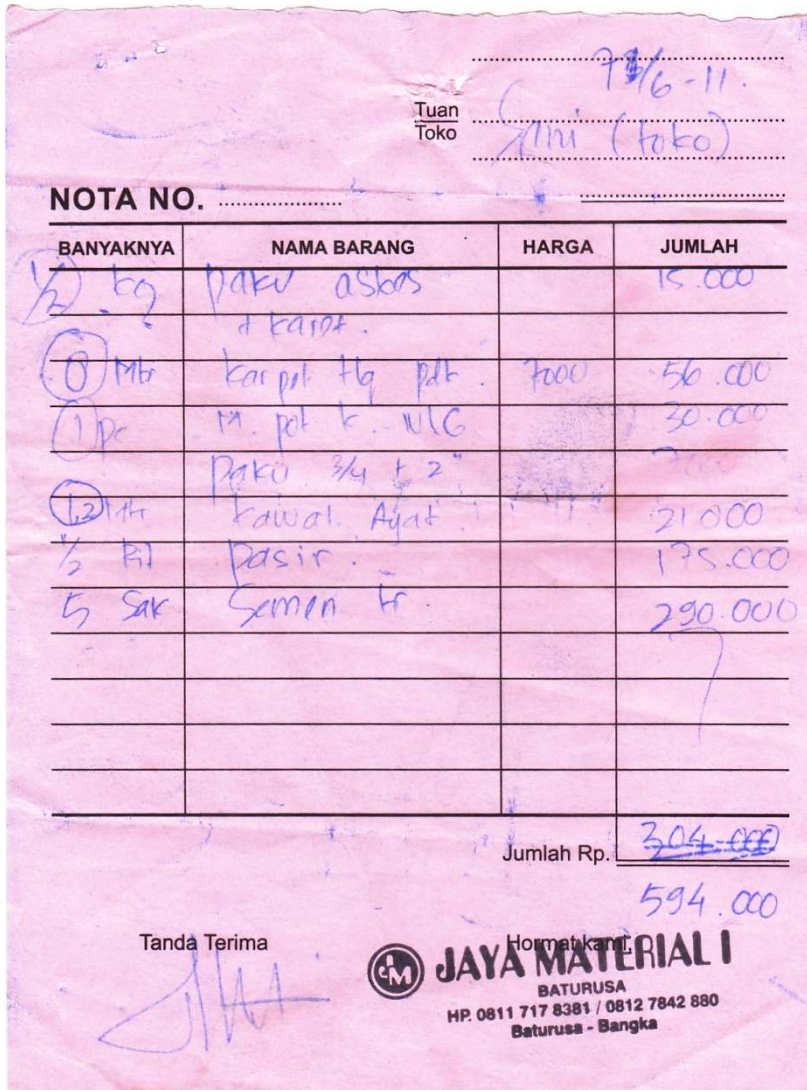 7 /6 - 11.
Tuan
Toko
(toko)
NOTA NO.
BANYAKNYA NAMA BARANG HARGA JUMLAH
1/2 kg paku asbes 15.000
+ karpt.
Mtr karpet tlg pdt. 7000 56.000
1 pc M. pot k. WIG 30.000
paku 3/4 + 2" 7000
1,2 Mtr kawat Ayat. 21000
1/2 Rit pasir. 175.000
5 Sak Semen tr. 290.000
Jumlah Rp. 304.000
594.000
Tanda Terima Hormat kami,
JM JAYA MATERIAL I
BATURUSA
HP. 0811 717 8381 / 0812 7842 880
Baturusa - Bangka